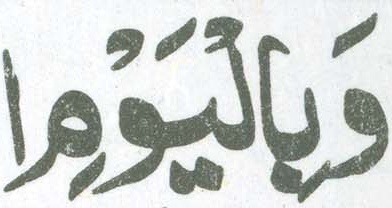 وَبِالْيَوْمِ ا